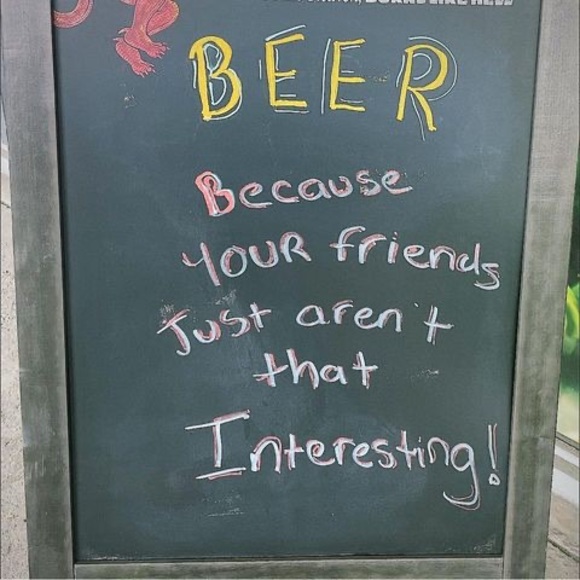 BEER
Because
YOUR friends
Just aren't
that
Interesting!